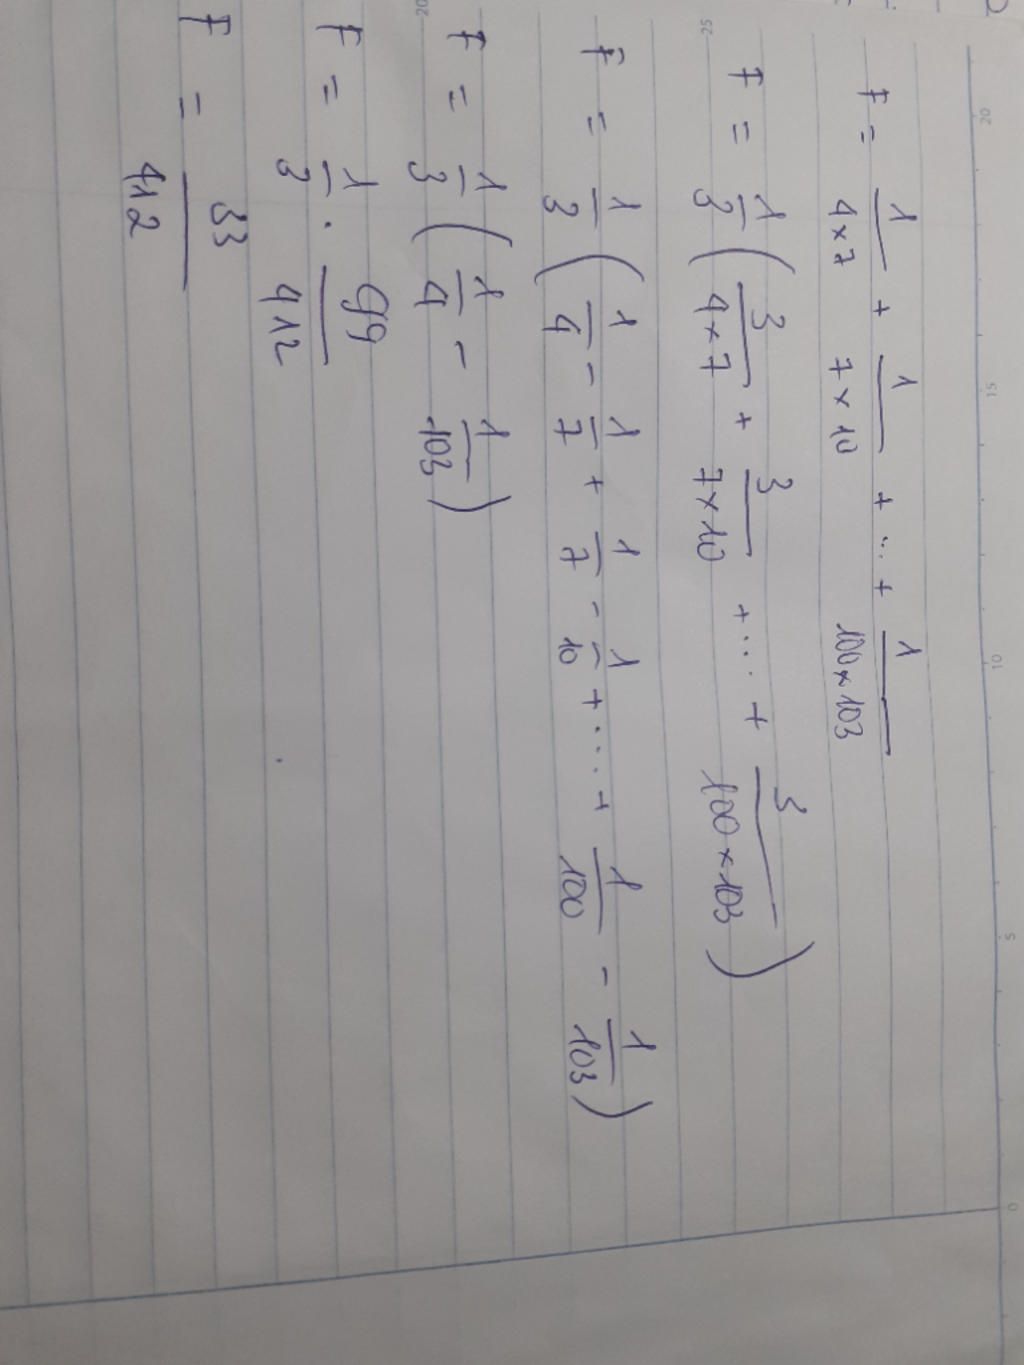 F = 1/4×7 + 1/7×10 + ... + 1/100×103
F = 1/3 ( 3/4×7 + 3/7×10 + ... + 3/100×103 )
F = 1/3 ( 1/4 - 1/7 + 1/7 - 1/10 + .... + 1/100 - 1/103 )
F = 1/3 ( 1/4 - 1/103 )
F = 1/3 . 99/412
F = 33/412
20
15
10
5
0
25
20